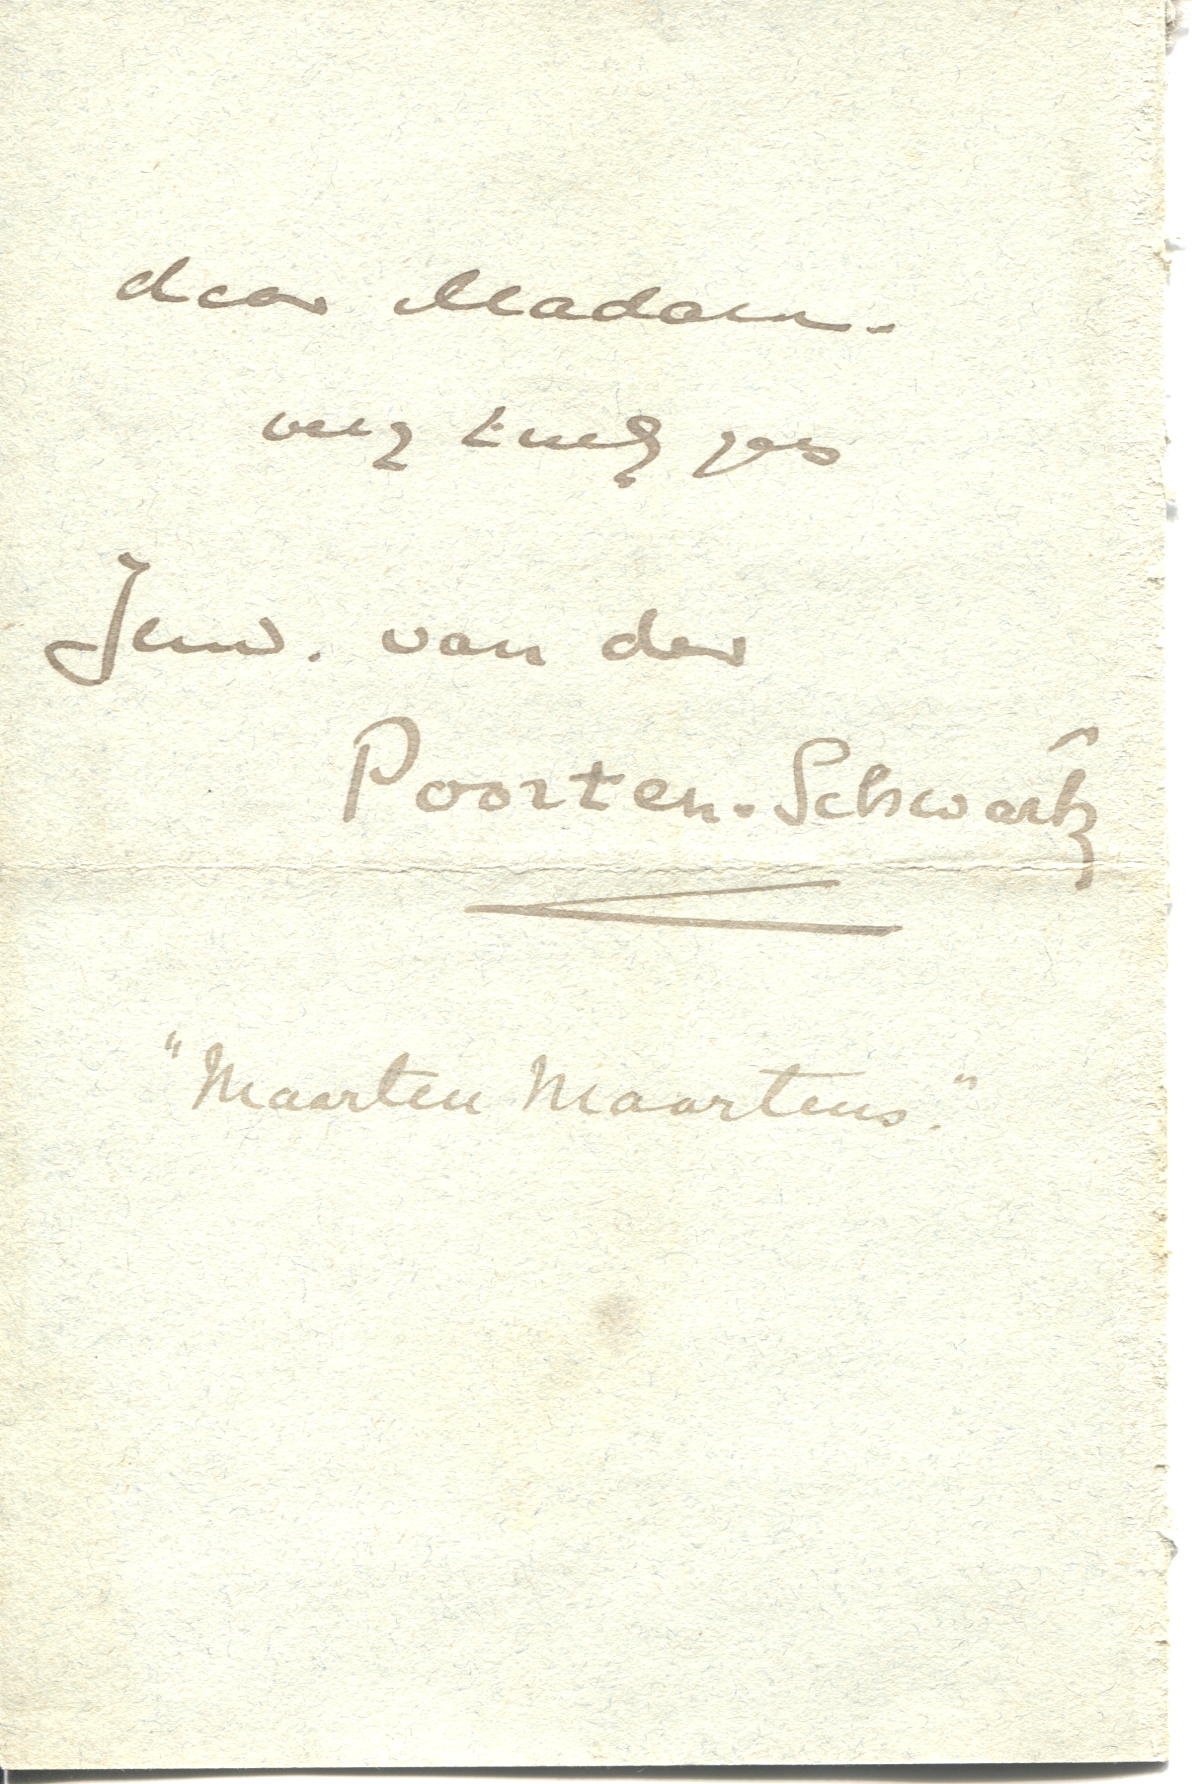 dear Madam.
very truly yrs
J.M.W. van der
Poorten-Schwartz
"Maarten Maartens."